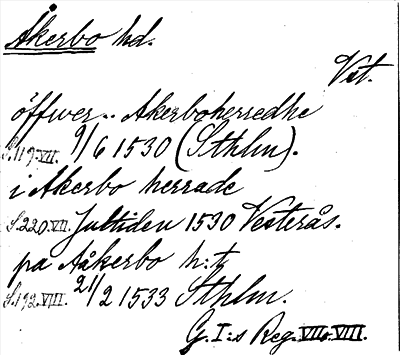 Åkerbo hd.
Vst.
öffwer.. Akerboherredhe
S.119.VII. 9/6 1530 (Sthlm).
i Åkerbo herrade
S.220.VII. Jultiden 1530 Vesterås.
på Aåkerbo h:t
S.192.VIII. 21/2 1533 Sthlm.
G.I:s Reg. VII o. VIII.